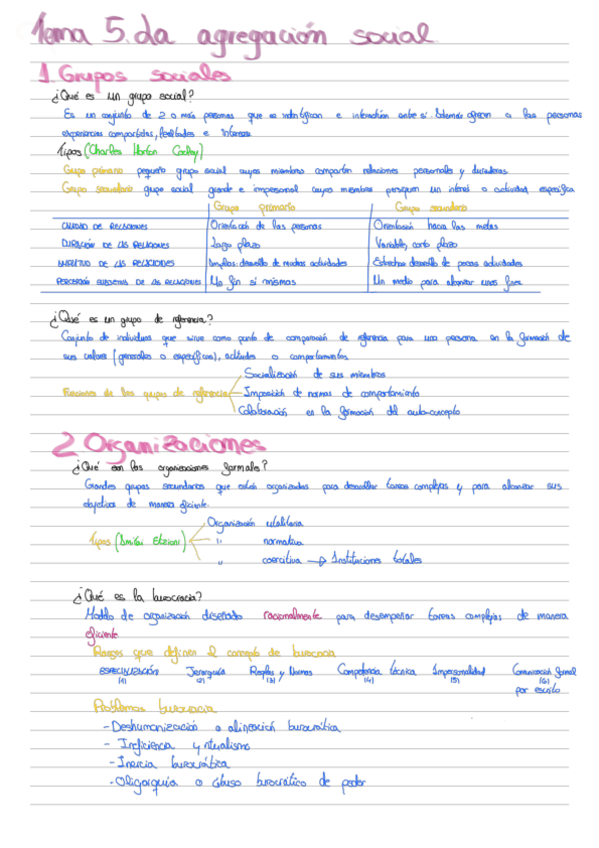 Tema 5. La agregación social
1. Grupos sociales
¿Qué es un grupo social?
Es un conjunto de 2 o más personas que se identifican e interactúan entre sí. Además ofrecen a las personas
experiencias compartidas, lealtades e intereses
Tipos (Charles Horton Cooley)
Grupo primario pequeño grupo social cuyos miembros comparten relaciones personales y duraderas.
Grupo secundario grupo social grande e impersonal cuyos miembros persiguen un interés o actividad específica
Grupo primario Grupo secundario
CALIDAD DE RELACIONES Orientación de las personas Orientación hacia las metas
DURACIÓN DE LAS RELACIONES Largo plazo Variable, corto plazo
AMPLITUD DE LAS RELACIONES Amplias: desarrollo de muchas actividades Estrechas desarrollo de pocas actividades
PERCEPCIÓN SUBJETIVA DE LAS RELACIONES Un fin sí mismas Un medio para alcanzar unos fines
¿Qué es un grupo de referencia?
Conjunto de individuos que sirve como punto de comparación de referencia para una persona en la formación de
sus valores (generales o específicos), actitudes o comportamientos
Socialización de sus miembros
Funciones de los grupos de referencia Imposición de normas de comportamiento
Colaboración en la formación del auto-concepto
2. Organizaciones
¿Qué son las organizaciones formales?
Grandes grupos secundarios que están organizados para desarrollar tareas complejas y para alcanzar sus
objetivos de manera eficiente.
Organización utilitaria
Tipos (Amitai Etzioni) " normativa
" coercitiva → Instituciones totales
¿Qué es la burocracia?
Modelo de organización diseñado racionalmente para desempeñar tareas complejas de manera
eficiente
Rasgos que definen el concepto de burocracia
ESPECIALIZACIÓN Jerarquía Reglas y Normas Competencia técnica Impersonalidad Comunicación formal
(1) (2) (3) (4) (5) (6)
por escrito
Problemas burocracia
- Deshumanización o alineación burocrática
- Ineficiencia y ritualismo
- Inercia burocrática
- Oligarquía o abuso burocrático de poder